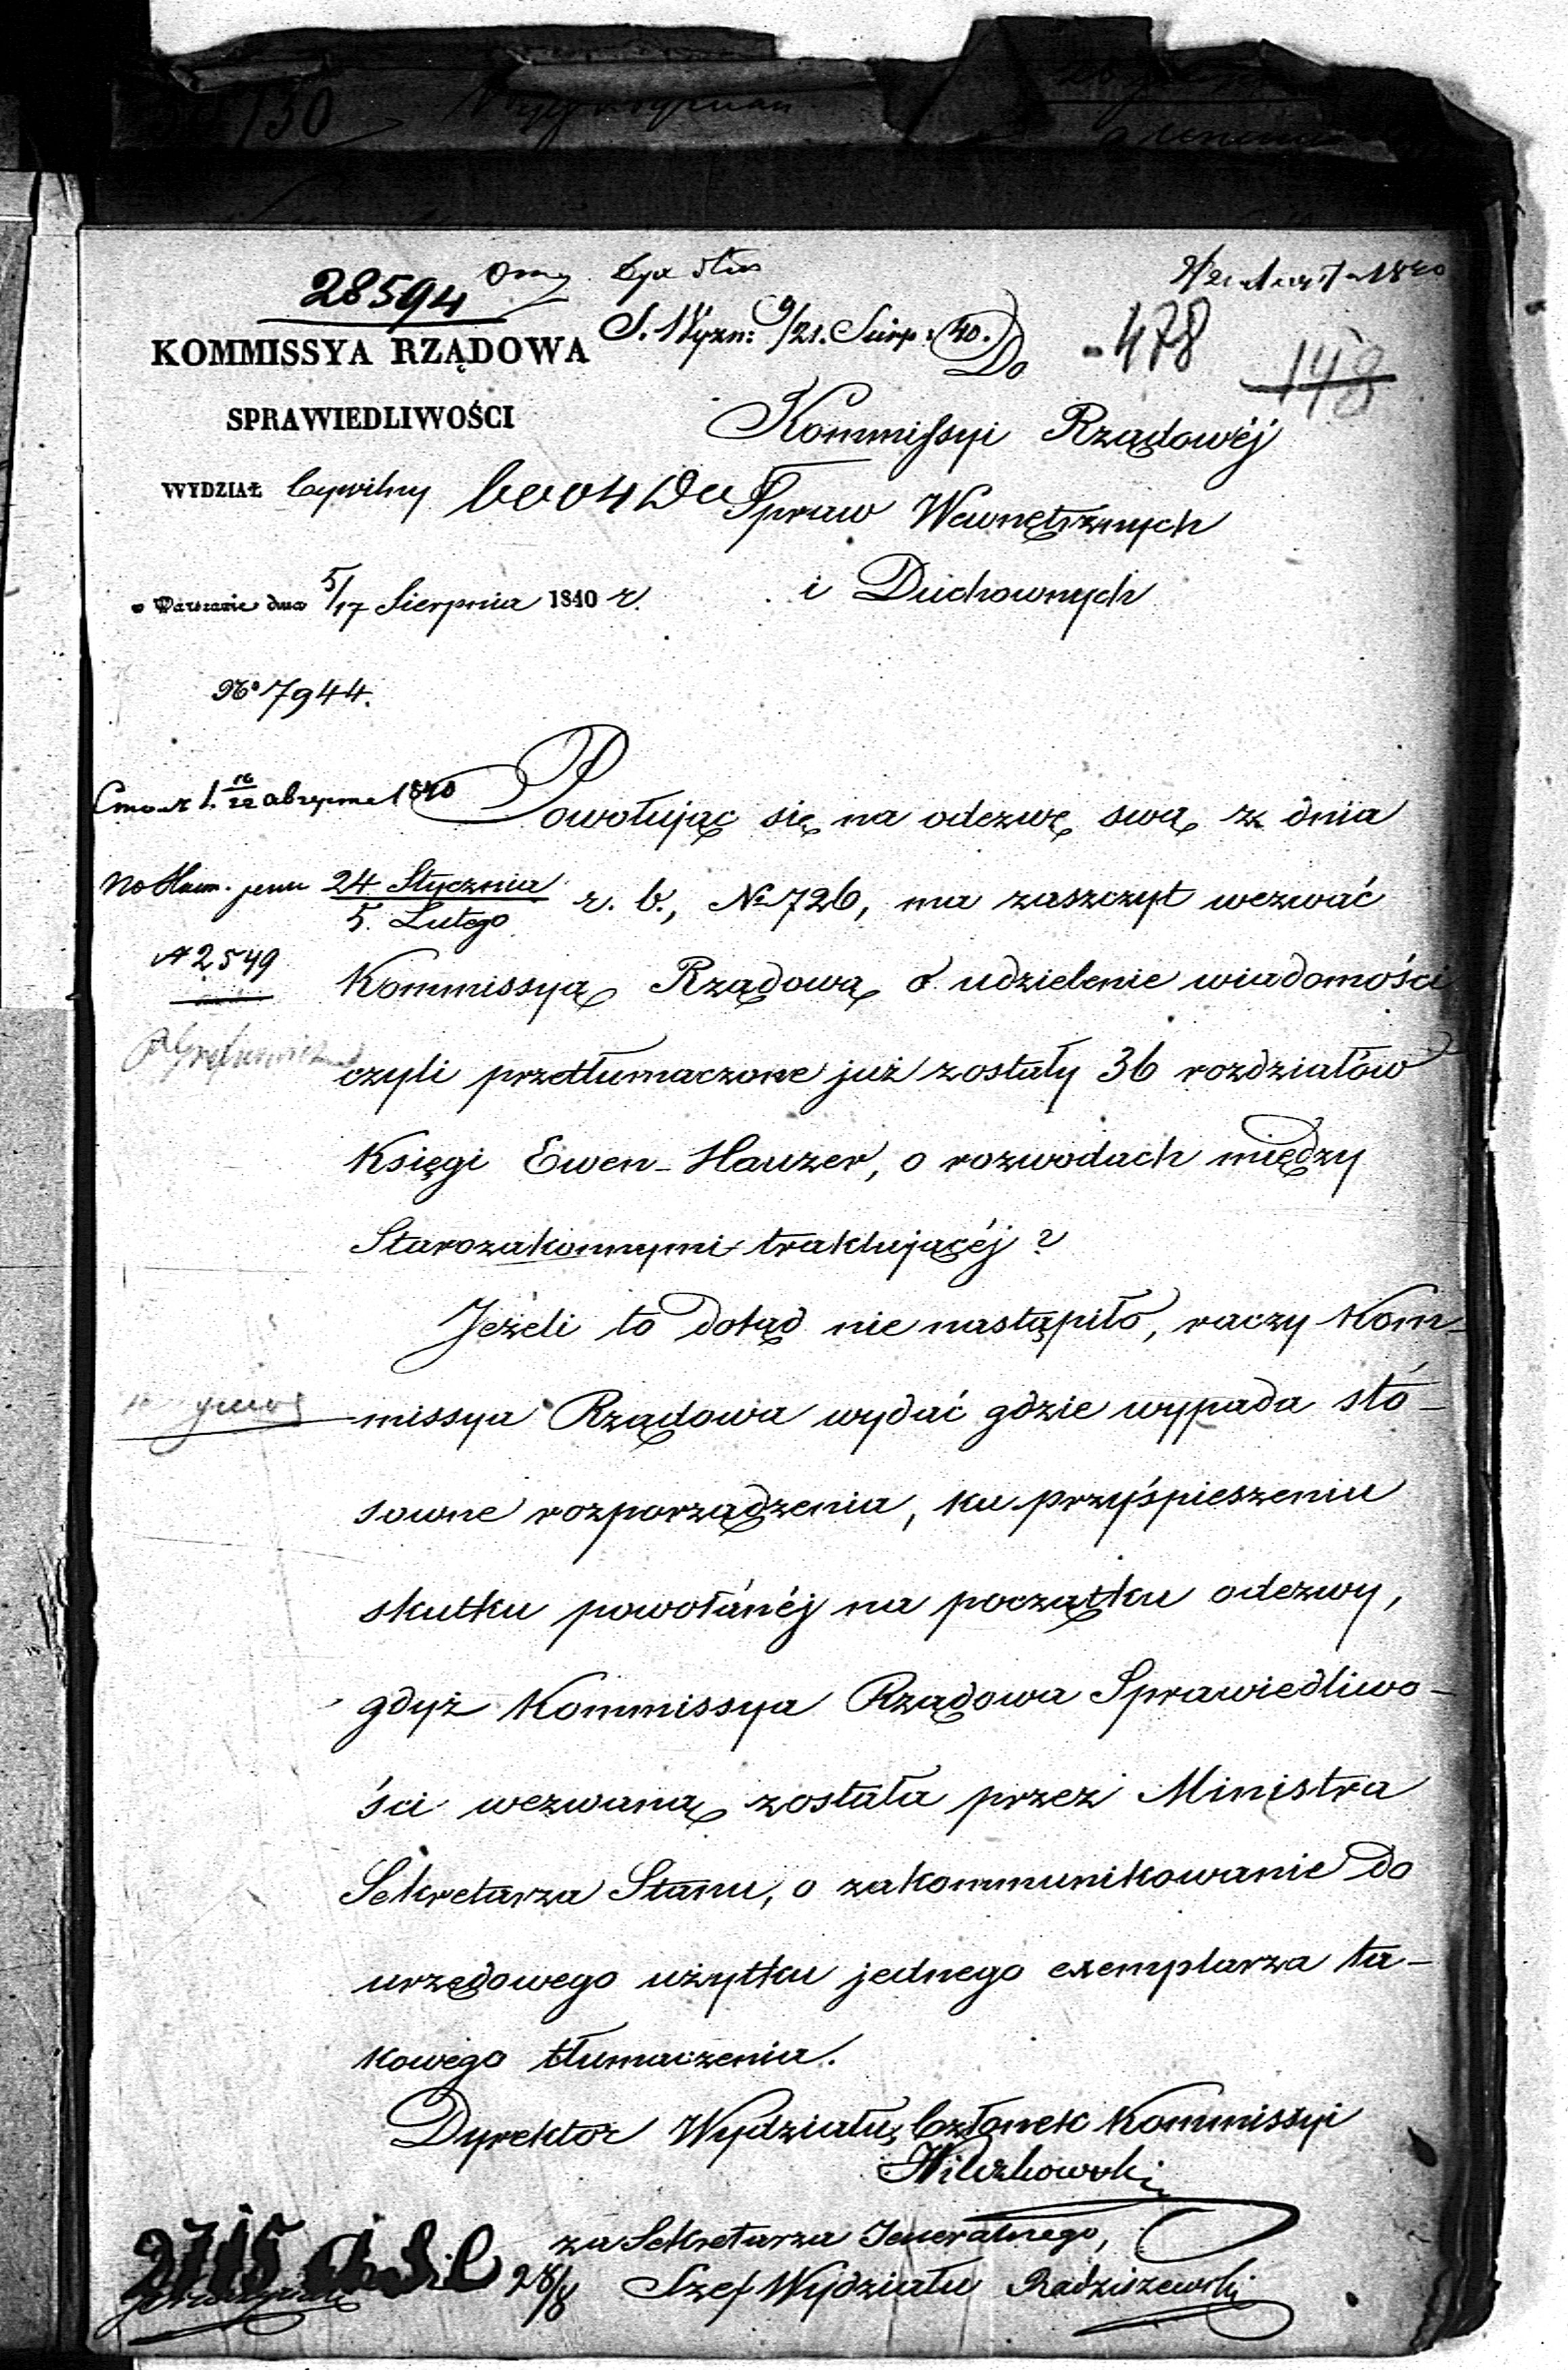 28594
S. Wyzn: 9/21. Sierp: 40.
478
148
KOMMISSYA RZĄDOWA
SPRAWIEDLIWOŚCI
WYDZIAŁ Cywilny
w Warszawie dnia 5/17 Sierpnia 1840 r.
No 7944.
Do
Kommissyi Rządowéj
Spraw Wewnętrznych
i Duchownych
1840
Powołując się na odezwę swą z dnia
24 Stycznia / 5. Lutego r. b., No 726, ma zaszczyt wezwać
2549
Kommissyą Rządową o udzielenie wiadomości
czyli przetłumaczone już zostały 36 rozdziałów
Księgi Ewen-Hauzer, o rozwodach między
Starozakonnymi traktującéj?
Jeżeli to dotąd nie nastąpiło, raczy Kom-
missya Rządowa wydać gdzie wypada stó-
sowne rozporządzenia, ku przyśpieszeniu
skutku powołánéj na początku odezwy,
gdyż Kommissya Rządowa Sprawiedliwo-
ści wezwaną została przez Ministra
Sekretarza Stanu, o zakommunikowanie do
urzędowego użytku jednego exemplarza ta-
kowego tłumaczenia.
Dyrektor Wydziału, Członek Kommissyi
za Sekretarza Jeneralnego,
28/8 Szef Wydziału Radziszewski
2715